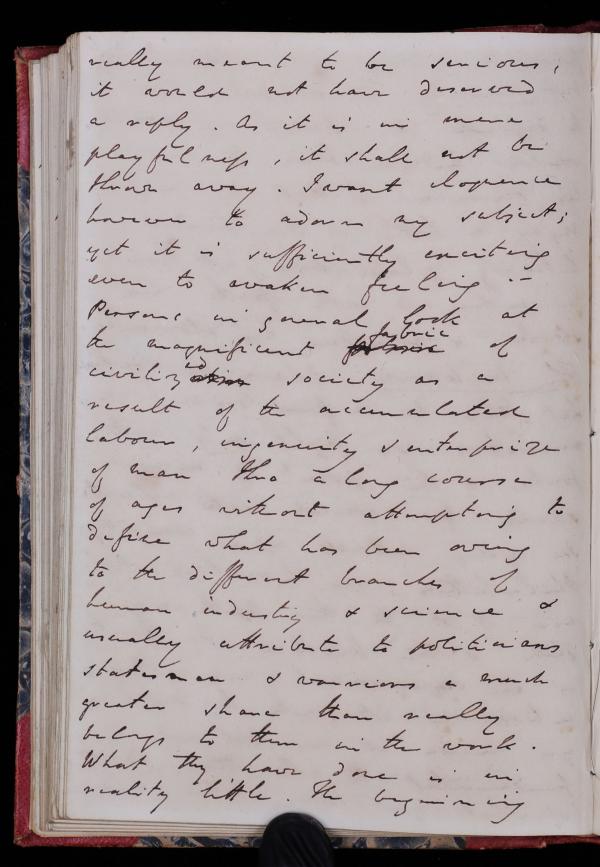 really meant to be serious,
it would not have deserved
a reply. As it is in mere
playfulness, it shall not be
thrown away. I want eloquence
however to adorn my subject;
yet it is sufficiently exciting
even to awaken feeling –
Persons in general look at
the magnificent fabric of
civilized society as a
result of the accumulated
labour, ingenuity & enterprize
of man thro a long course
of ages without attempting to
define what has been owing
to the different branches of
human industry & science &
usually attribute to politicians
statesmen & warriors a much
greater share than really
belongs to them in the work.
What they have done is in
reality little. The beginning